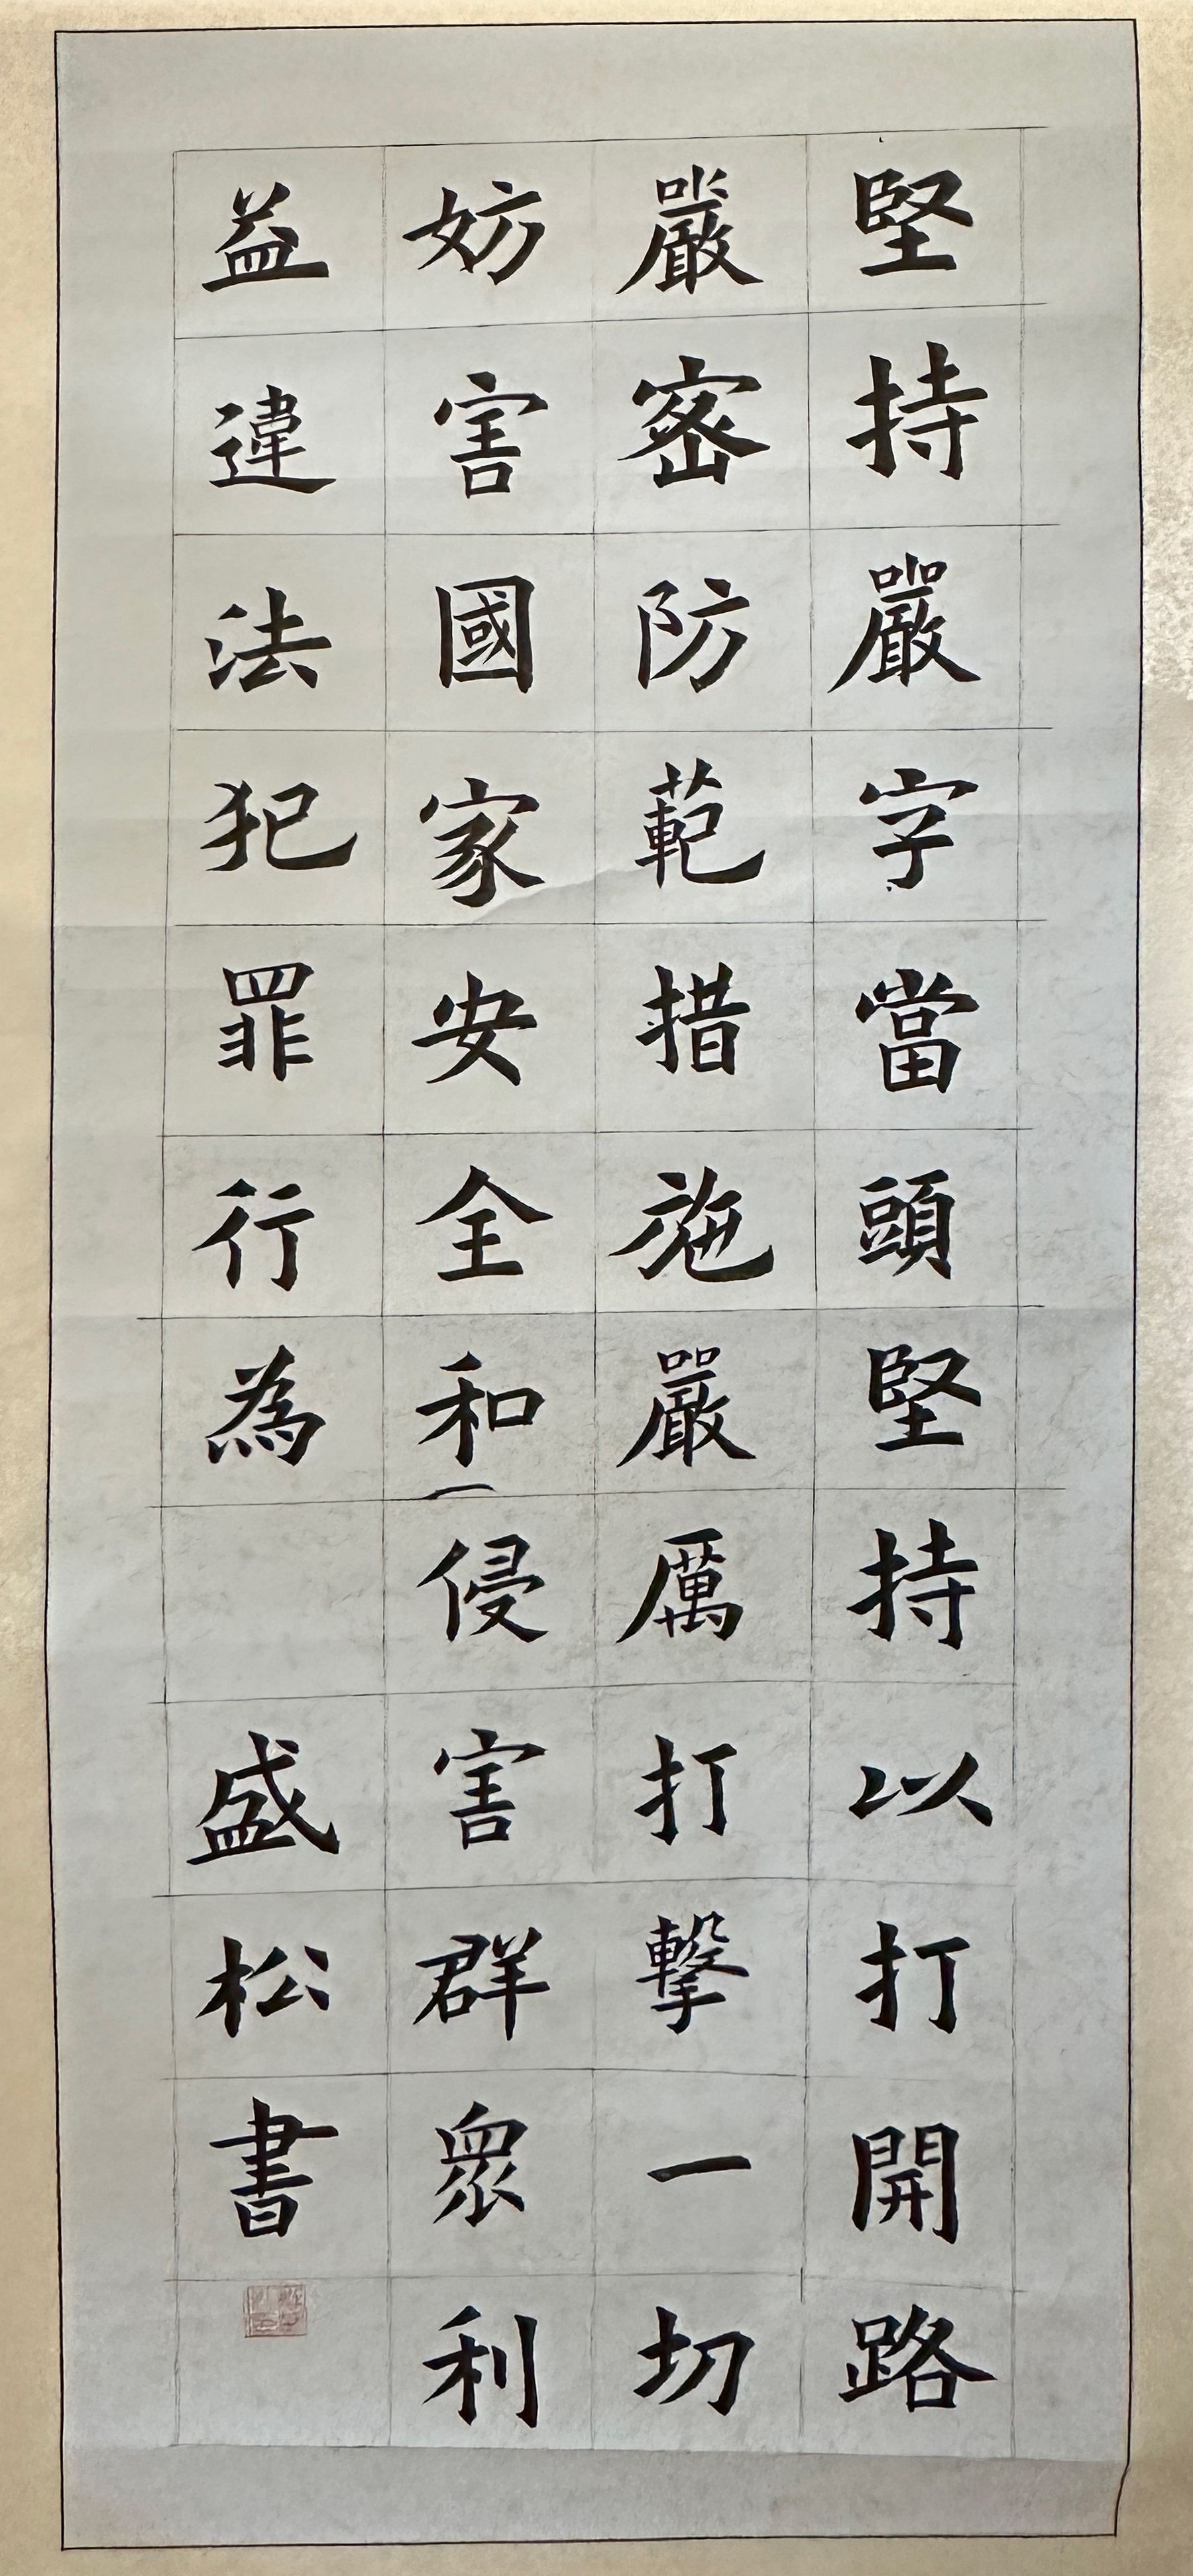 堅持嚴字當頭堅持以打開路
嚴密防範措施嚴厲打擊一切
妨害國家安全和侵害群眾利
益違法犯罪行為 盛松書